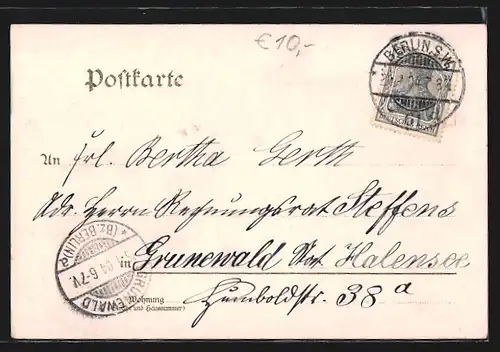 €10,-
BERLIN S.W.
Postkarte
An Frl. Bertha Gerth
Adr. Herrn Rechnungsrat Steffens
in Grunewald Stat. Halensee
Wohnung
(Straße und Hausnummer)
Humboldtstr. 38a
GRUNEWALD
* (Bz. BERLIN) a
04. 6-7V.